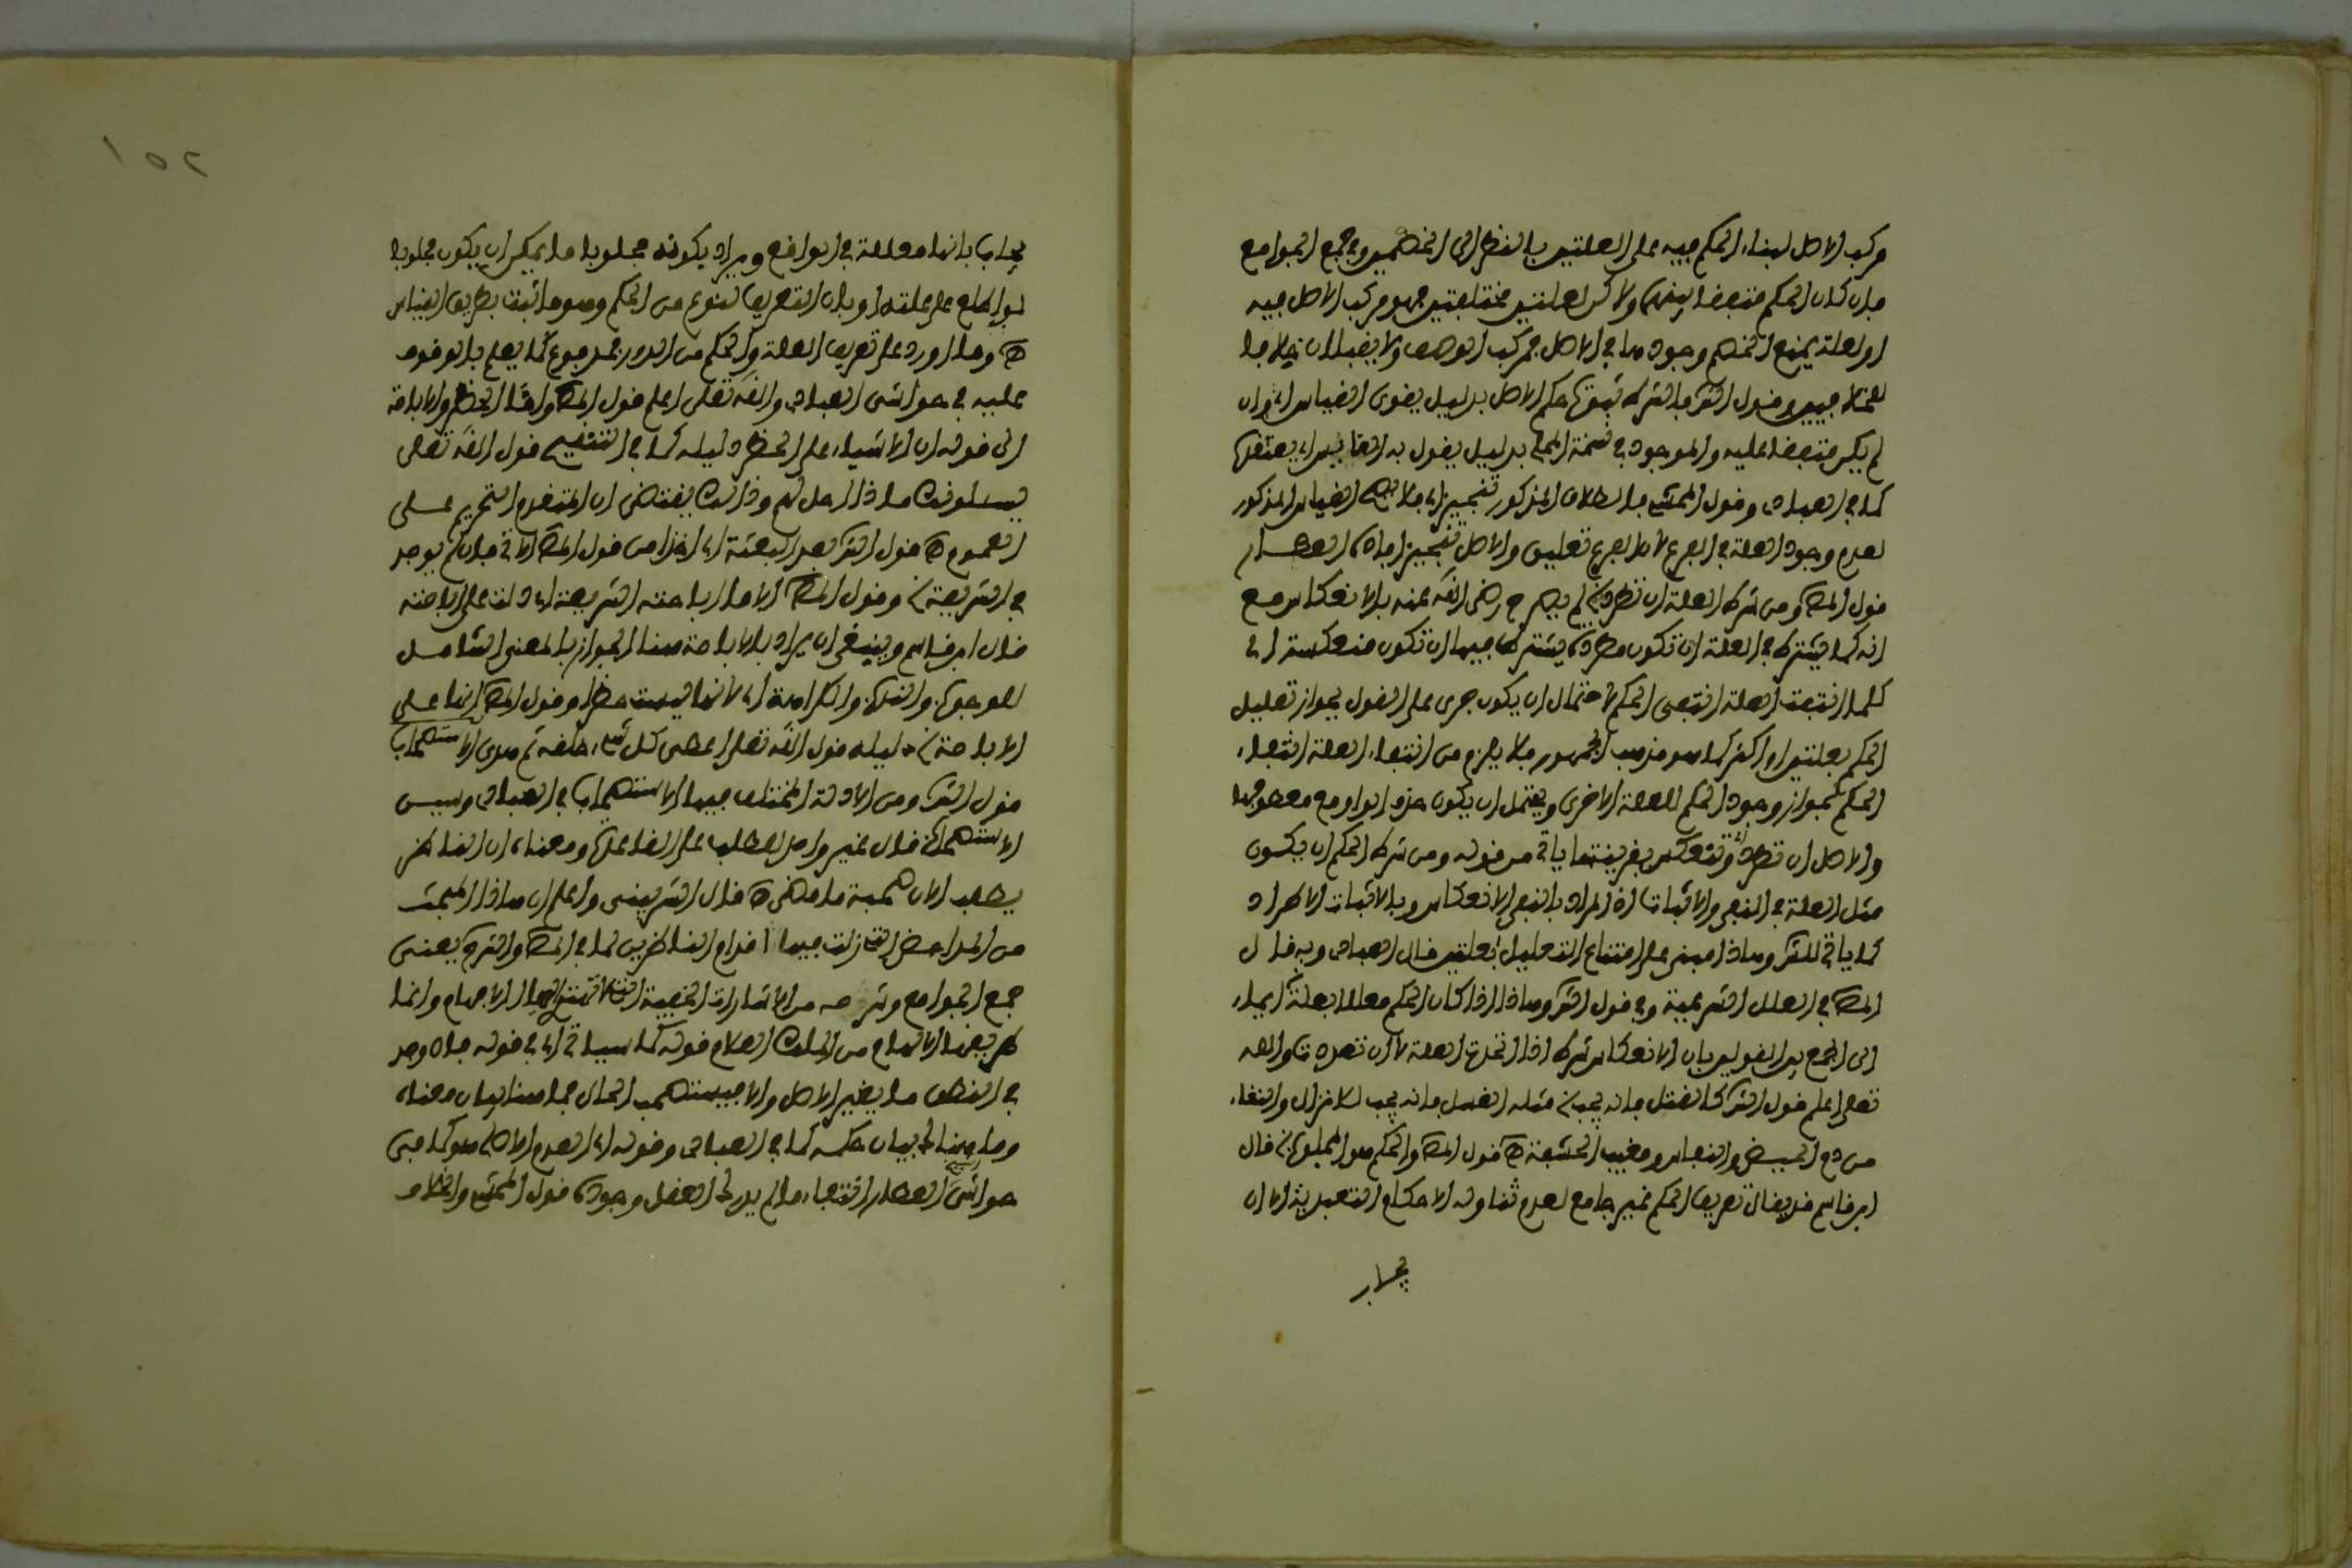 مركب الاصل لبناء الحكم فيه على العلتين بالنظر الى الخصمين وفي جمع الجوامع
فان كان الحكم متفقا بينهما ولاكن لعلتين مختلفتين فهو مركب الاصل فيه
او لعلة يمنع الخصم وجودها في الاصل فمركب الوصف ولا يقبلان خلافا
قول الشر بالشرط ثبوت حكم الاصل بدليل يقوى القياس اي وان
لم يكن متفقا عليه والموجود في نسخة المحلي بدليل يقول به القايس اي يعتقد
كما في العبادي وقول المحشي فالطلاق المذكور تنجيز اي فلا يصح القياس المذكور
لعدم وجود العلة في الفرع لان الفرع تعليق والاصل تنجيز افاده العطار
قول المص ومن شرط العلة ان تطرد لم يصرح رضي الله عنه بالانعكاس مع
انه كما يشترط في العلة ان تكون مطردة يشترط فيها ان تكون منعكسة اي
كلما انتفت العلة انتفى الحكم لاحتمال ان يكون جرى على القول بجواز تعليل
الحكم بعلتين او اكثر كما هو مذهب الجمهور فلا يلزم من انتفاء العلة انتفاء
الحكم لجواز وجود الحكم للعلة الاخرى ويحتمل ان يكون حذف الواو مع معطوفها
والاصل ان تطرد وتنعكس بقرينة ما ياتي من قوله ومن شرط الحكم ان يكون
مثل العلة في النفي والاثبات اذ المراد بالنفي الانعكاس وبالاثبات الاطراد
كما ياتي للشر وهذا مبني على امتناع التعليل بعلتين قال العبادي وبه قال
المص في العلل الشرعية وفي قول الشر وهذا اذا كان الحكم معللا بعلة ايماء
الى الجمع بين القولين بان الانعكاس شرط اذا اتحدت العلة لا ان تعددت والله
تعلى اعلم قول الشر كالقتل فانه يجب مثله الغسل فانه يجب للانزال والنقاء
من دم الحيض والنفاس ومغيب الحشفة ه قول المص والحكم هو المجلوب قال
ابن قاسم قد يقال تعريف الحكم غير جامع لعدم تناوله الاحكام التعبدية الا ان
يجاب
١٥٢
يجاب بانها معللة في الواقع ويراد بكونه مجلوبا ما يمكن ان يكون مجلوبا
لو اطلع على علته او بان التعريف لنوع من الحكم وهو ما اثبت بطريق القياس
ه وما اورد على تعريف العلة والحكم من الدور فمدفوع كما يعلم بالوقوف
عليه في حواشي العبادي والله تعلى اعلم قول المص واما الحظر والاباحة
الى قوله ان الاشياء على الحظر دليله كما في التنقيح قول الله تعلى
يسئلونك ماذا احل لهم وذالك يقتضي ان المتقدم التحريم على
العموم ه قول الشر بعد البعثة اي اخذا من قول المص الاتي فان لم يوجد
في الشريعة وقول المص الا ما اباحته الشريعة اي دلت على اباحته
قال ابن قاسم وينبغي ان يراد بالاباحة هنا الجواز بالمعنى الشامل
للوجوب والندب والكراهة اي لانها ليست حظرا وقول المص انها على
الاباحة دليله قول الله تعلى اعطى كل شيء خلقه ثم هدى الاستصحاب
قول الشر ومن الادلة المختلف فيها الاستصحاب في العبادي وسين
الاستصحاب قال غير واحد للطلب على القاعدة ومعناه ان الناظر
يطلب الان صحبة ما مضى ه قال الشربيني واعلم ان هذا المبحث
من المداحض التي زلت فيها اقدام الناظرين لما في المص والشرح يعني
جمع الجوامع وشرحه من الاشارات الخفية التي لا تهتدي اليها الافهام وانما
طريقها الالهام من الملك العلام قوله كما سياتي اي في قوله فان وجد
في النطق ما يغير الاصل والا فيستصحب الحال فما هنا لبيان معناه
وما هناك لبيان حكمه كما في العبادي وقوله اي العدم الاصلي هو كما في
حواشي العطار انتفاء ما لم يدرك العقل وجوده قول المحشي والخلاف